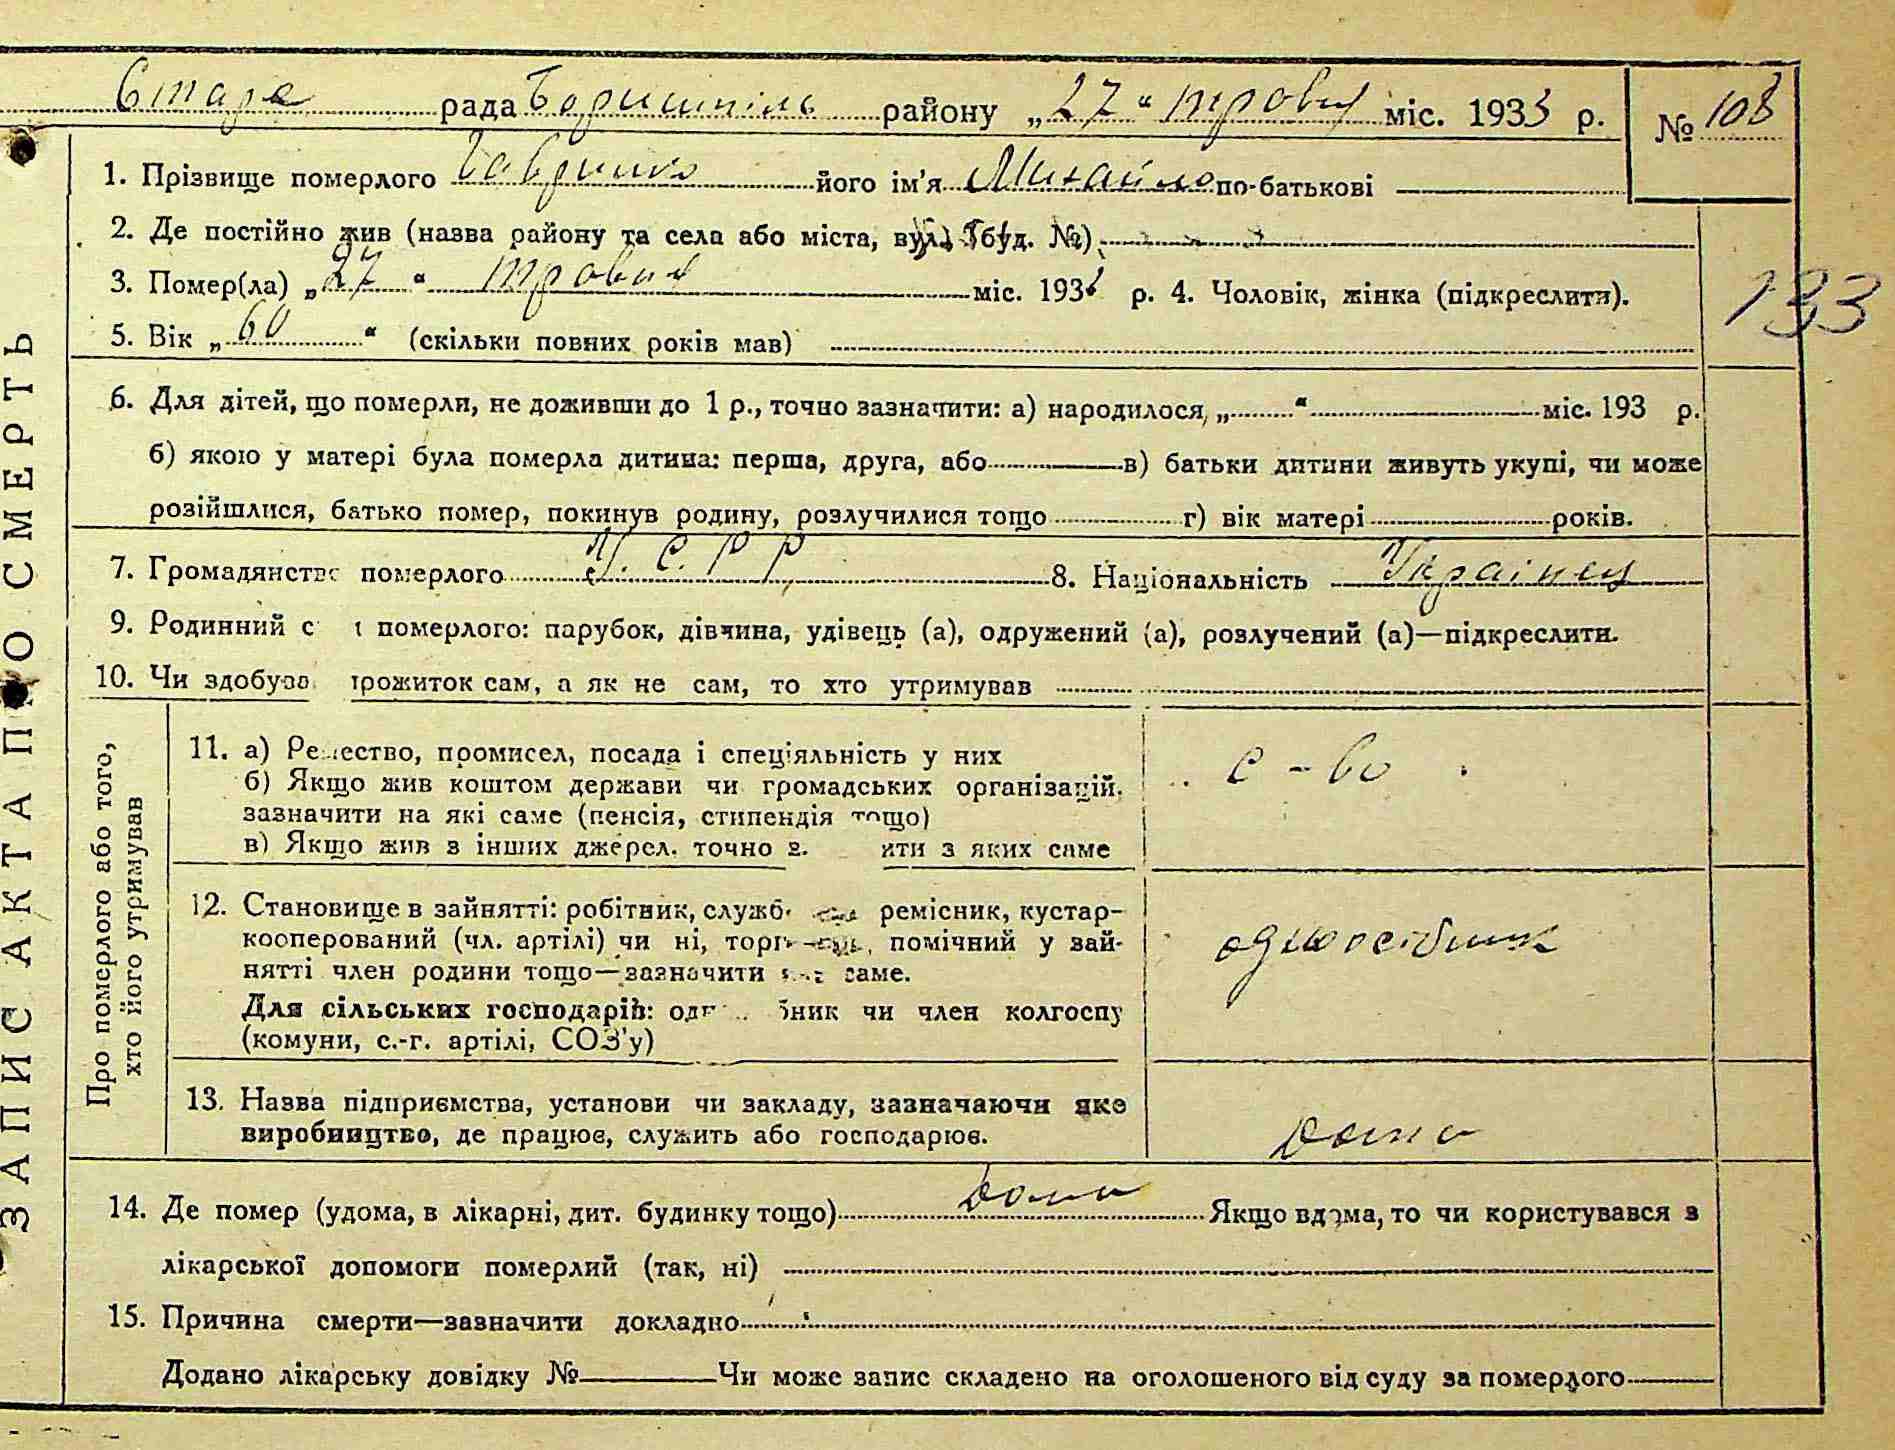 Стара рада Бориспіль району „27“ травня міс. 1933 р. № 108
1. Прізвище померлого Гавриш його ім'я Михайло по-батькові
2. Де постійно жив (назва району та села або міста, вул. буд. №)
3. Помер(ла) „27“ травня міс. 1933 р. 4. Чоловік, жінка (підкреслити).
133
5. Вік „60“ (скільки повних років мав)
6. Для дітей, що померли, не доживши до 1 р., точно зазначити: а) народилося „ “ міс. 193 р.
б) якою у матері була померла дитина: перша, друга, або в) батьки дитини живуть укупі, чи може
розійшлися, батько помер, покинув родину, розлучилися тощо г) вік матері років.
7. Громадянство померлого У.С.Р.Р. 8. Національність Українец
9. Родинний с померлого: парубок, дівчина, удівець (а), одружений (а), розлучений (а)—підкреслити.
10. Чи здобував прожиток сам, а як не сам, то хто утримував
ЗАПИС АКТА ПРО СМЕРТЬ
Про померлого або того,
хто його утримував
11. а) Ремество, промисел, посада і спеціяльність у них
с-во
б) Якщо жив коштом держави чи громадських організацій,
зазначити на які саме (пенсія, стипендія тощо)
в) Якщо жив з інших джерел, точно з ити з яких саме
12. Становище в зайнятті: робітник, служб ремісник, кустар-
кооперований (чл. артілі) чи ні, торг помічний у зай-
одноосібник
нятті член родини тощо—зазначити саме.
Для сільських господарів: одн бник чи член колгоспу
(комуни, с.-г. артілі, СОЗ'у)
13. Назва підприємства, установи чи закладу, зазначаючи яке
виробництво, де працює, служить або господарює.
дома
14. Де помер (удома, в лікарні, дит. будинку тощо) дома Якщо вдома, то чи користувався з
лікарської допомоги померлий (так, ні)
15. Причина смерти—зазначити докладно
Додано лікарську довідку № Чи може запис складено на оголошеного від суду за померлого